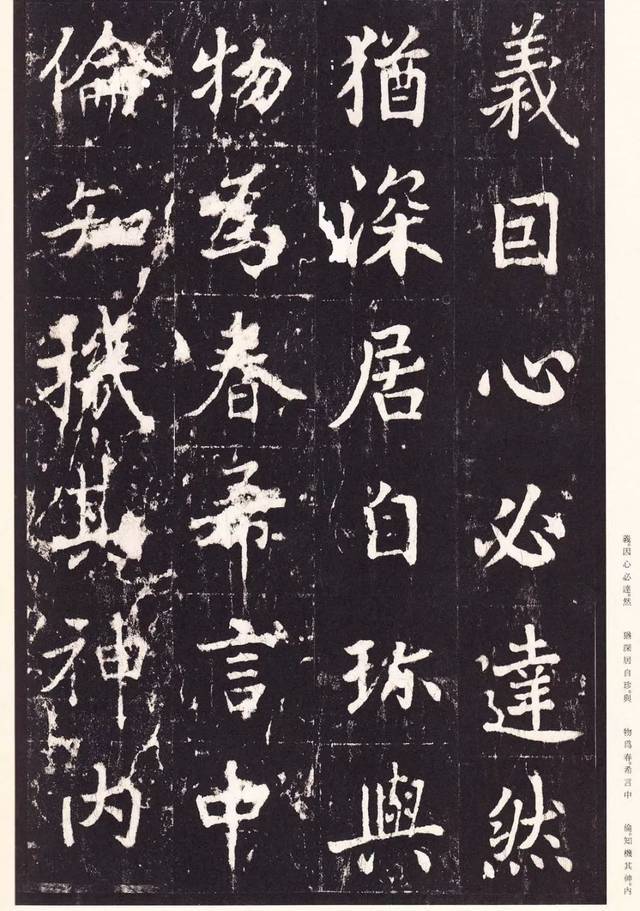 義因心必達然
猶深居自珎與
物為春希言中
倫知機其神内
義。因心必達。然
猶深居自珍。與
物爲春。希言中
倫。知機其神。内